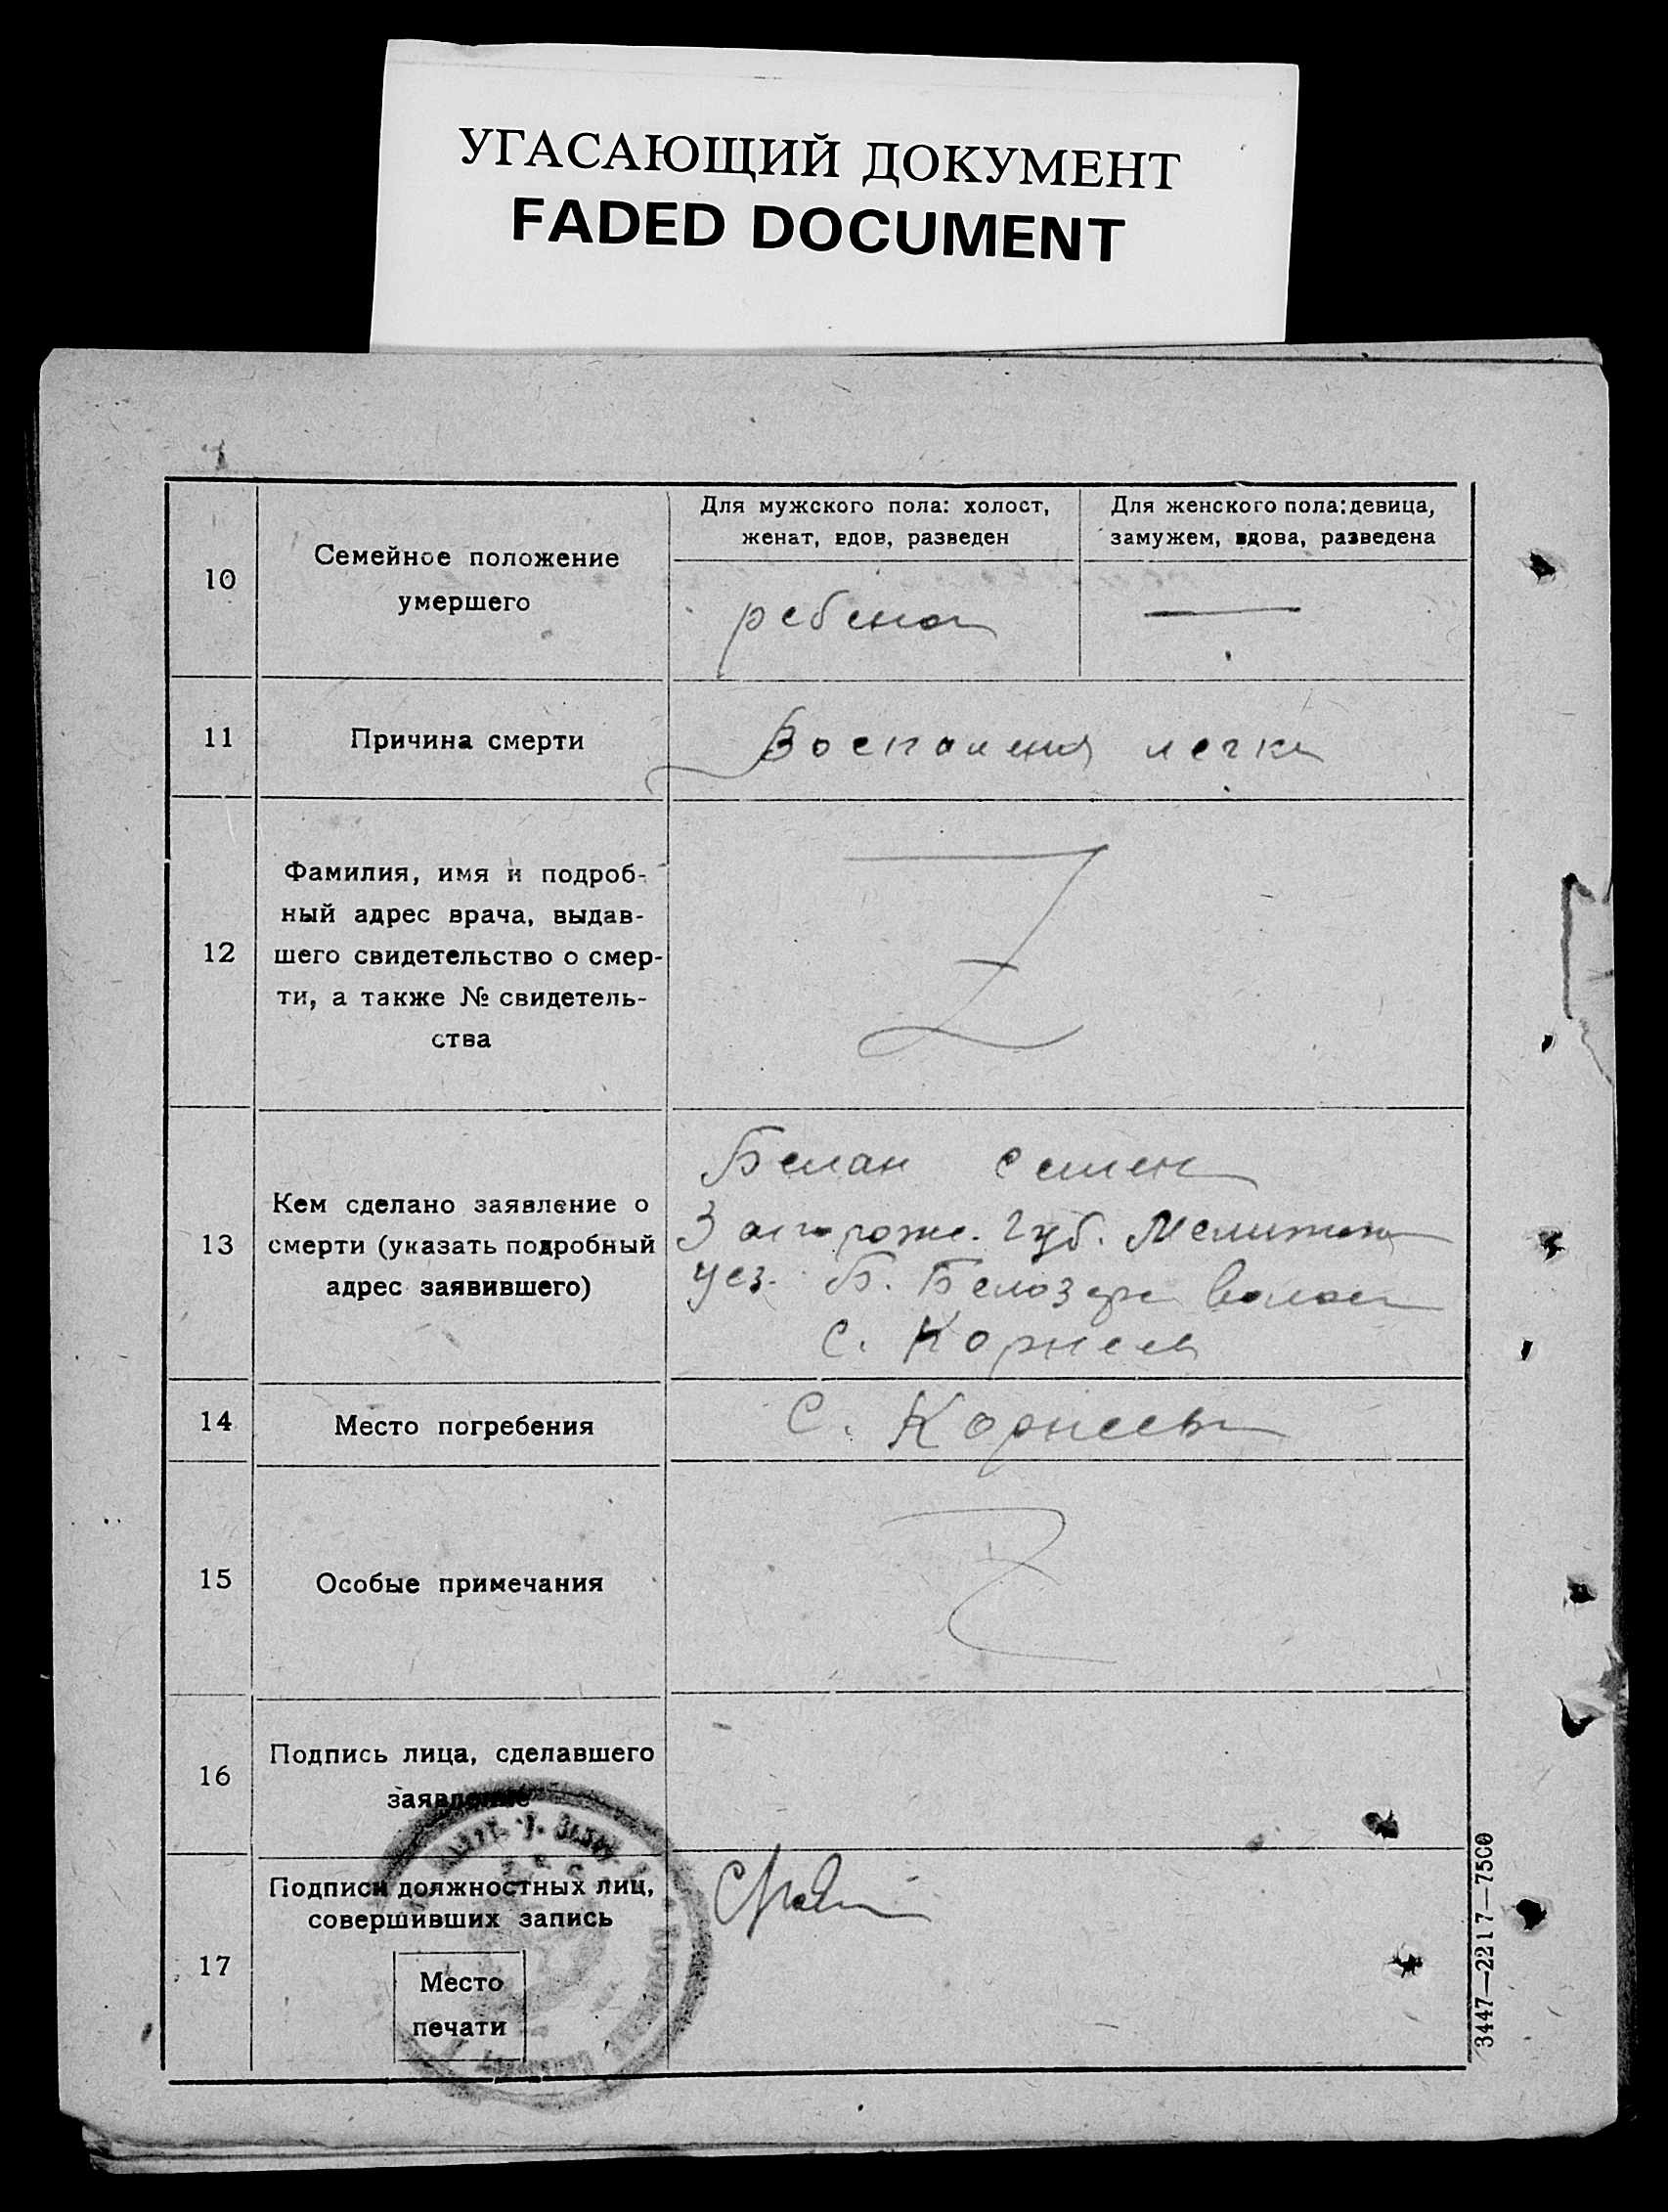 УГАСАЮЩИЙ ДОКУМЕНТ
FADED DOCUMENT
10
Семейное положение
умершего
Для мужского пола: холост,
женат, вдов, разведен
Для женского пола: девица,
замужем, вдова, разведена
ребенок
11
Причина смерти
Воспаления легки
12
Фамилия, имя и подроб-
ный адрес врача, выдав-
шего свидетельство о смер-
ти, а также № свидетель-
ства
13
Кем сделано заявление о
смерти (указать подробный
адрес заявившего)
Белан Семен
Запорож. Губ.
уез. Б. Белозер волос
с. Корнеев
14
Место погребения
С. Корнеев
15
Особые примечания
16
Подпись лица, сделавшего
заявление
17
Подписи должностных лиц,
совершивших запись
Место
печати
3447—2217—7500